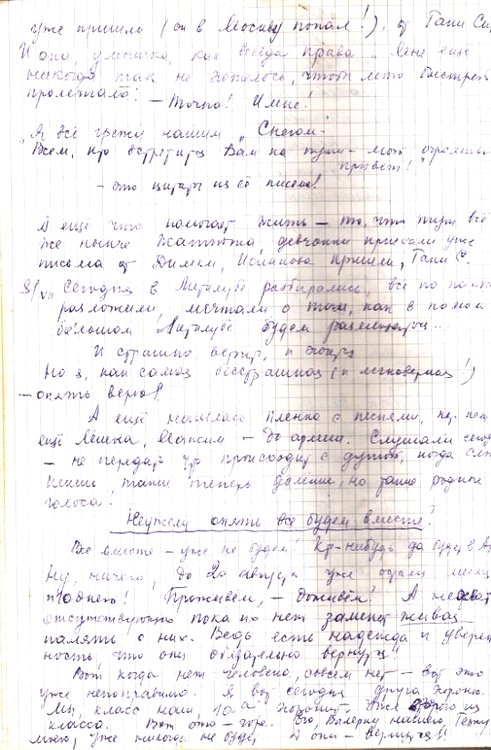 уже пришло (он в Москву попал!), от Тани Си
И она, умничка, как всегда права "Мне ещё
никогда так не хотелось, чтобы лето быстрей
пролетало! – Точно! И мне!
"А всё грежу нашим "Снегом".
Всем, кто встретится Вам на пути – мой огромный
привет!"
– это цитаты из её письма!
А ещё что помогает жить – то, что тут всё
же нынче девчонки приехали уже
письма от Димки, пришли, Тани С.
8/VII Сегодня в Актклубе разбирались, всё по
разложили, мечтали о том, как в новом
большом Актклубе будем размещаться...
И страшно верить, и
Но я, как самая бесстрашная (и легковерная!)
– опять верю!
А ещё нашлась пленка с песнями, где
ещё Лёшка, Максим – до армии. Слушали сегодня
– не передать что происходит с душой, когда
такие теперь далёкие, но такие родные
голоса!
Неужели опять все будем вместе?
Все вместе – уже не будем! Кто-нибудь да будет в
Ну, ничего, до 20 августа уже
Проживём, – доживём! А
отсутствующих пока их нет заменит живая
память о них. Ведь есть надежда и уверен
ность, что они обязательно вернутся!
Вот когда нет человека, совсем нет – вот это
уже непоправимо. Я вот сегодня друга хороню.
Мы, класс наш, 10 "а" хоронит. Уже второго из
класса. Вот это – горе. Его, Валерку нашего,
уже никогда не будет. А они – вернутся!